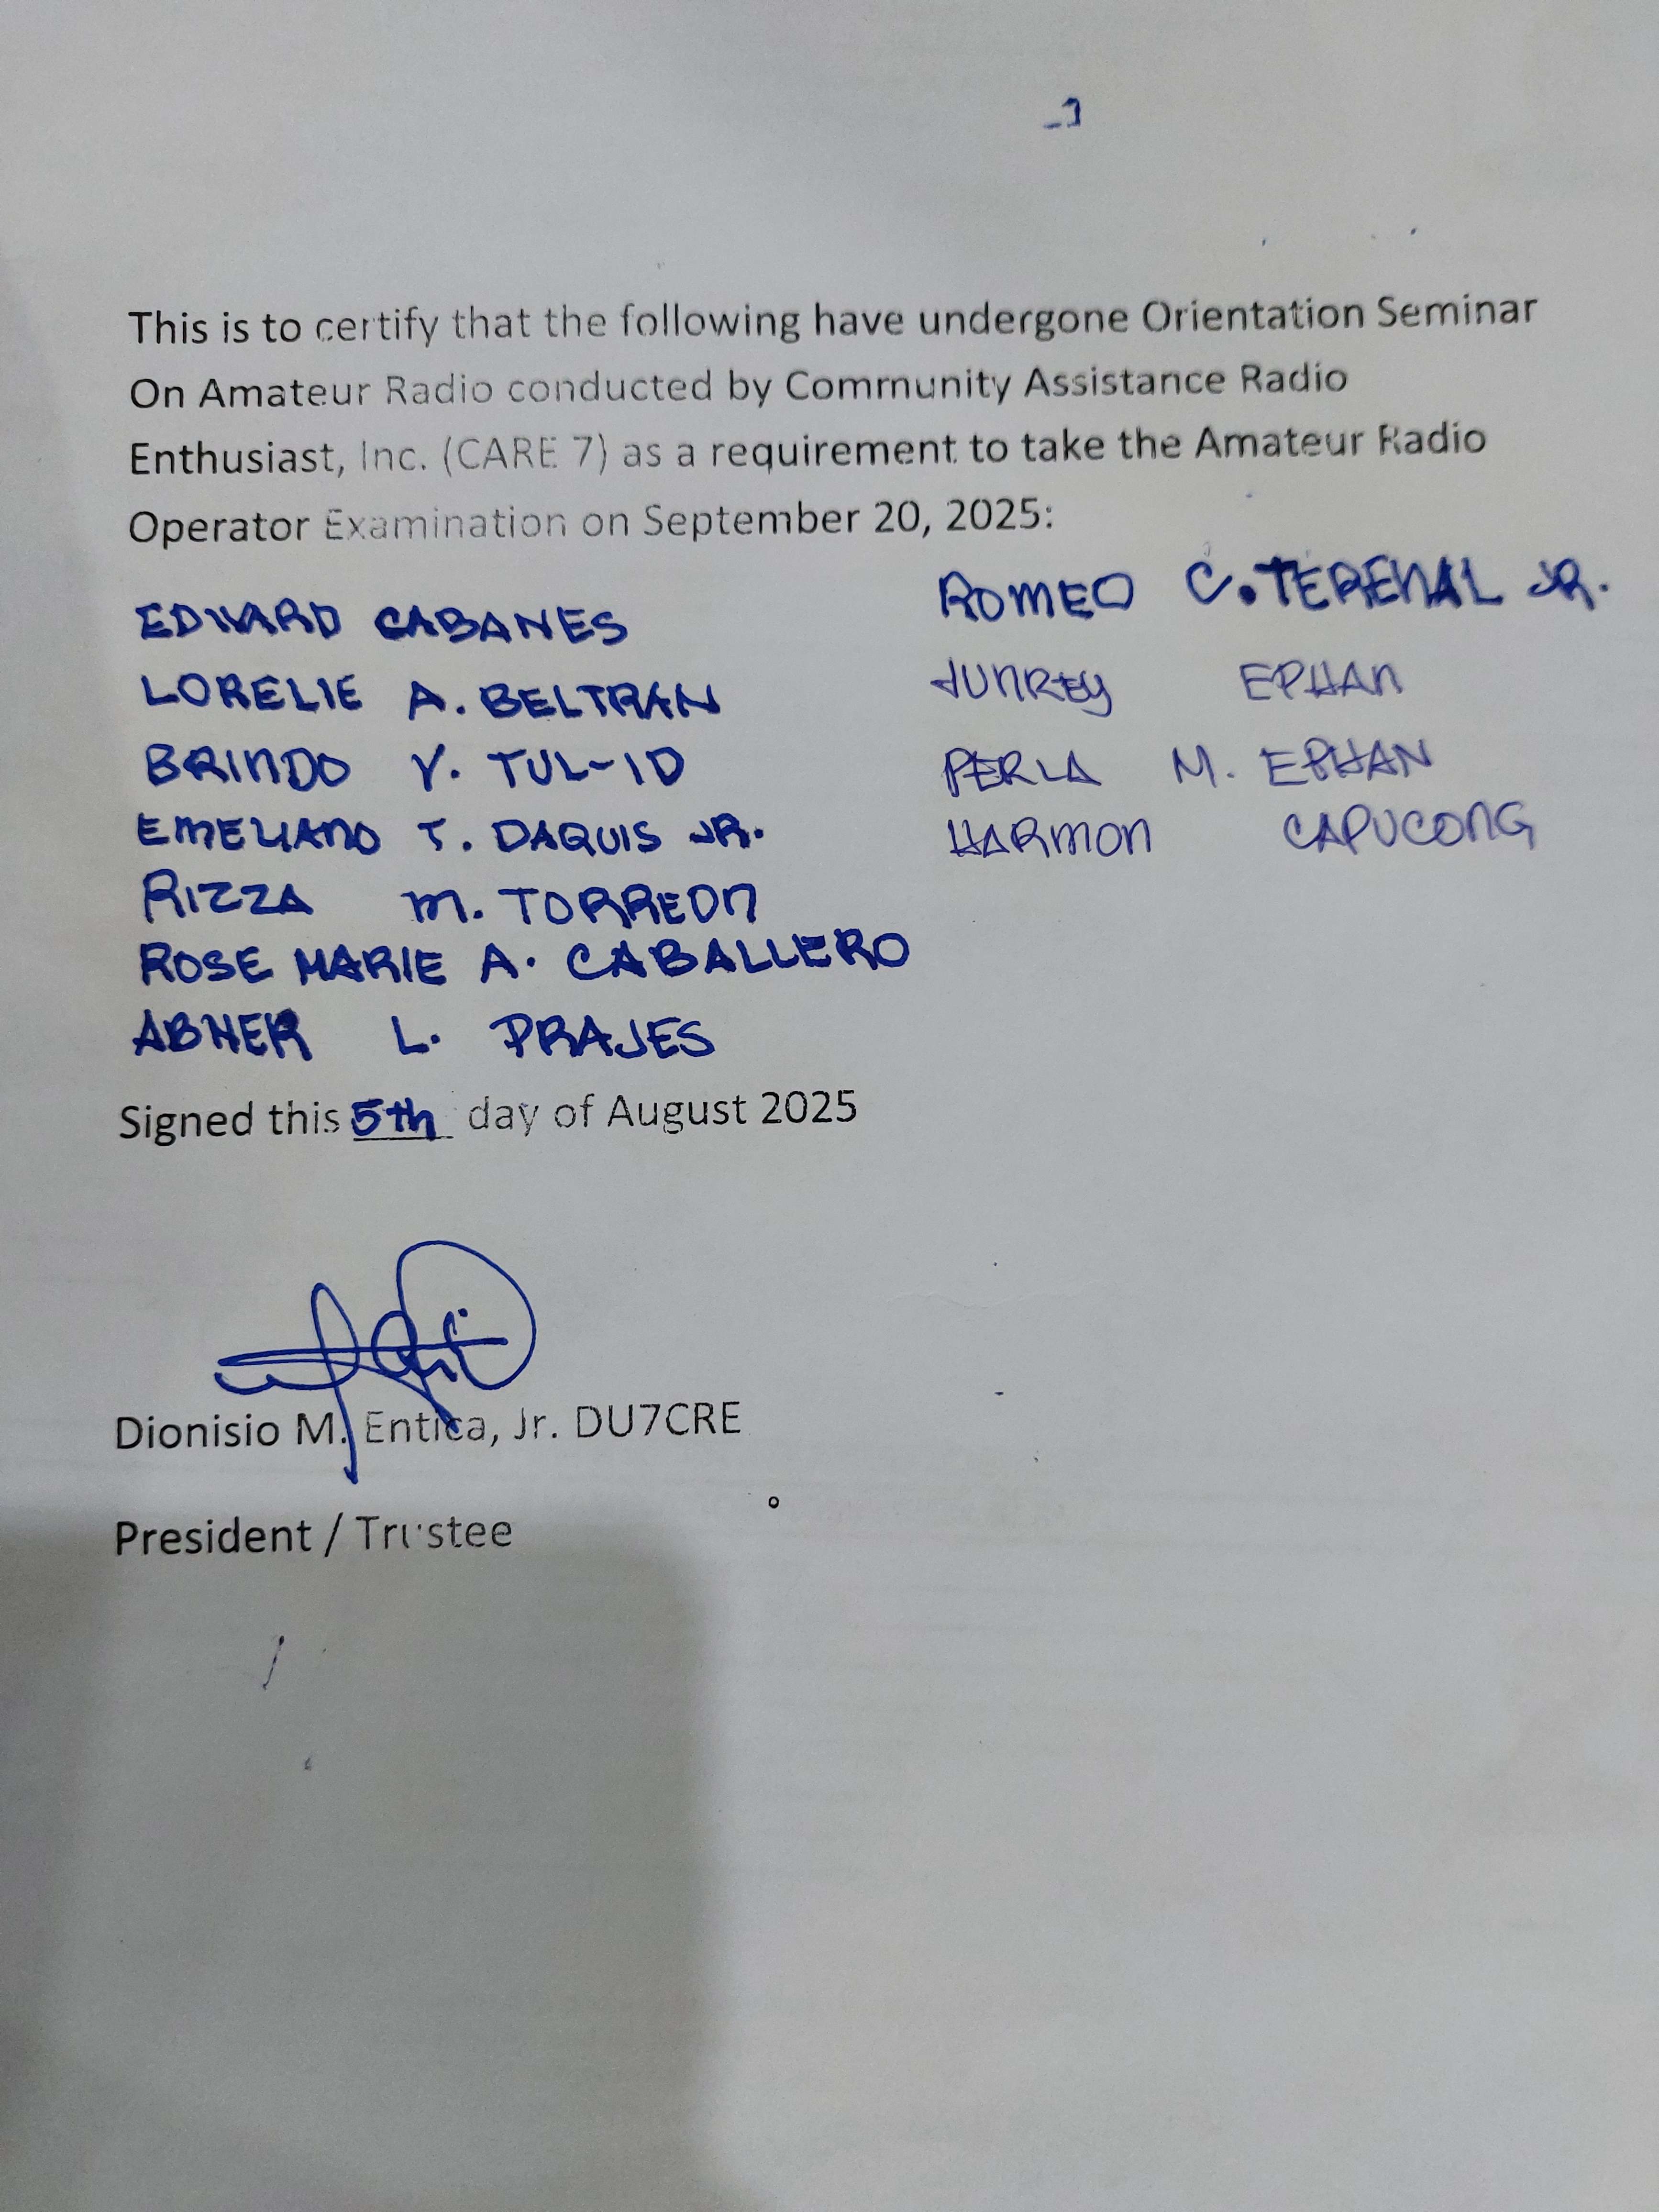 This is to certify that the following have undergone Orientation Seminar
On Amateur Radio conducted by Community Assistance Radio
Enthusiast, Inc. (CARE 7) as a requirement to take the Amateur Radio
Operator Examination on September 20, 2025:
EDWARD CABANES
LORELIE A. BELTRAN
BRINDO Y. TUL-ID
EMELIANO T. DAQUIS JR.
RIZZA M. TORREON
ROSE MARIE A. CABALLERO
ABNER L. PRAJES
ROMEO C. TERENAL JR.
JUNREY EPHAN
PERLA M. EPHAN
HARMON CAPUCONG
Signed this 5th day of August 2025
Dionisio M. Entica, Jr. DU7CRE
President / Trustee